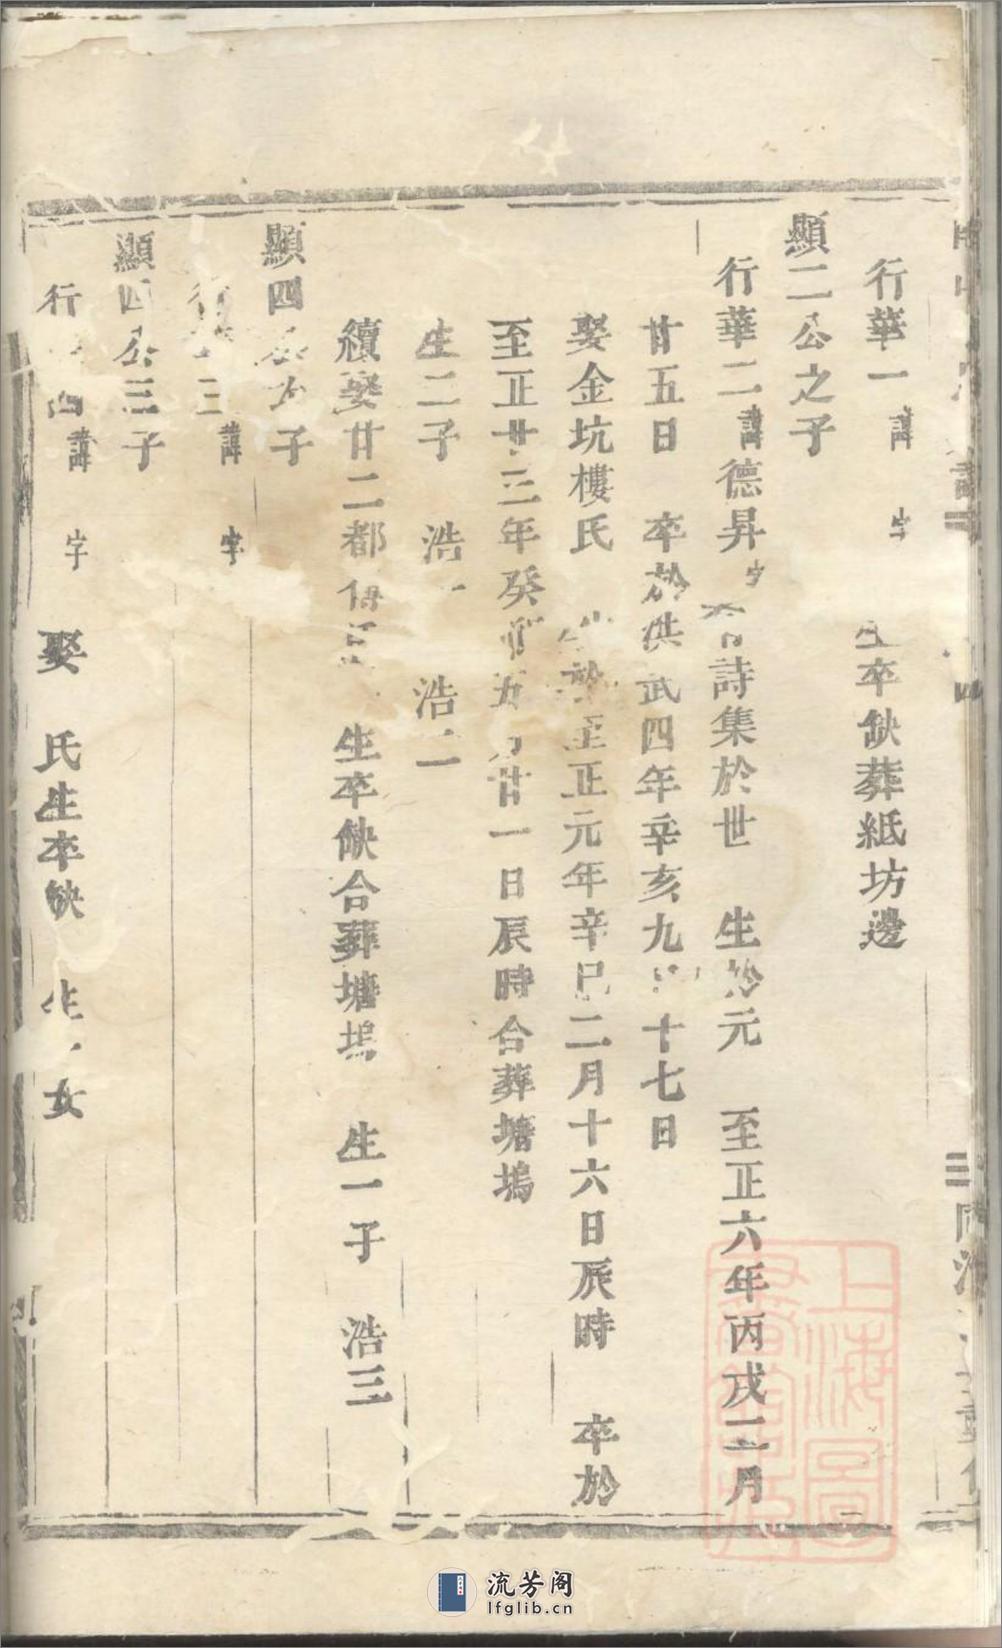 行華一 諱 字 生卒缺葬紙坊邊
顯二公之子
行華二諱德昇字 有詩集於世 生於元 至正六年丙戌二月
廿五日 卒於洪武四年辛亥九月十七日
娶金坑樓氏 生於至正元年辛巳二月十六日辰時 卒於
至正廿三年癸卯五月廿一日辰時合葬塘塢
生二子 浩一 浩二
續娶廿二都 生卒缺合葬塘塢 生一子 浩三
顯四公 子
行 三諱 字
顯四公三子
行 四諱 字 娶 氏生卒缺 生一女
上海圖書館藏
流芳阁
lfglib.cn